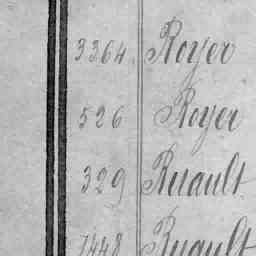 3364 Royer
526 Royer
329 Ruault
1448 Ruault